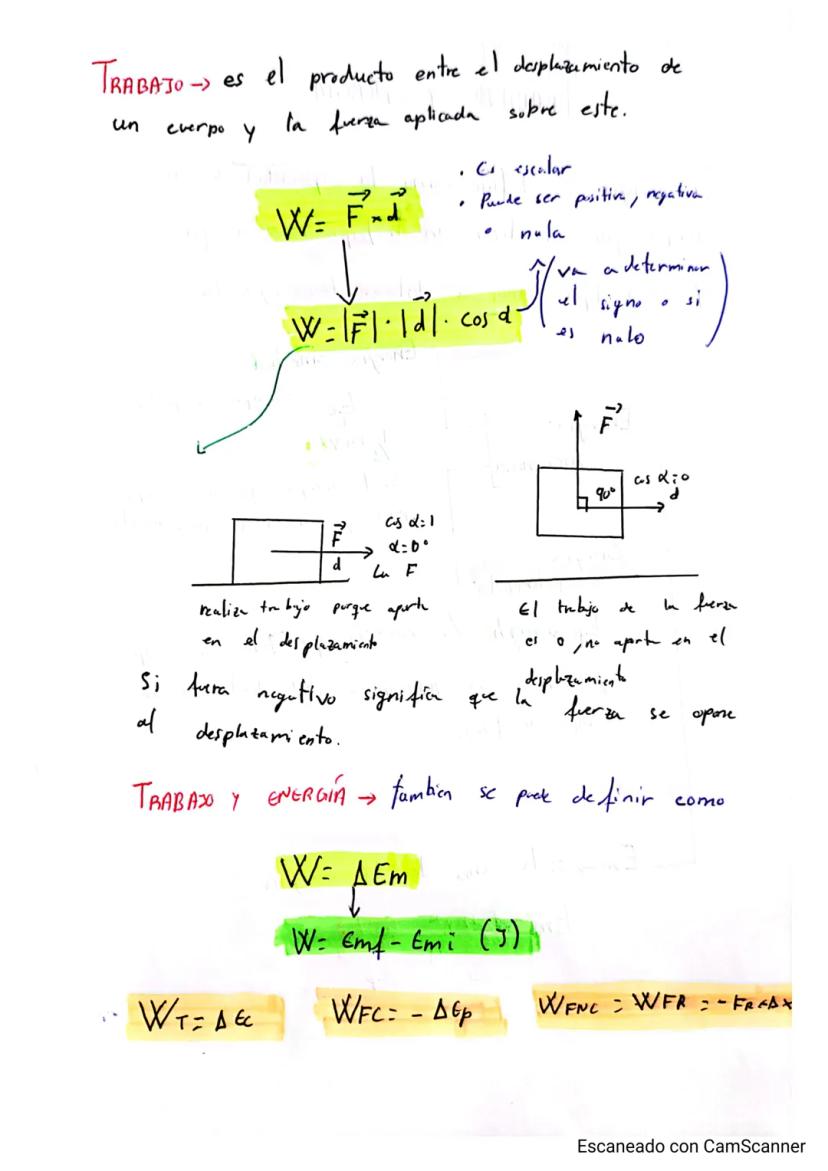 TRABAJO → es el producto entre el desplazamiento de
un cuerpo y la fuerza aplicada sobre este.
W= F⃗ × d⃗
• Es escalar
• Puede ser positiva, negativa
o nula
W=|F⃗|·|d⃗|. cos α
(va a determinar
el signo o si
es nulo)
F⃗
90°
cos α=0
d
F⃗
d
cos α=1
α=0°
La F
realiza trabajo porque aporta
en el desplazamiento
El trabajo de la fuerza
es 0, no aporta en el
desplazamiento
Si fuera negativo significa que la fuerza se opone
al desplazamiento.
TRABAJO Y ENERGÍA → tambien se puede definir como
W= ΔEm
W= Emf - Emi (J)
WT= ΔEc
WFC= - ΔEp
WFNC = WFR = - FR×Δx
Escaneado con CamScanner